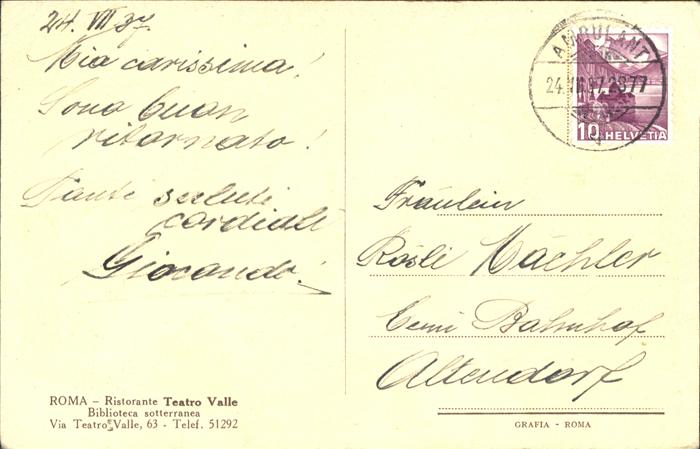 24. VII 37.
Mia carissima!
Sono buon
ritornato!
Tanti saluti
cordiali
Giocondo!
AMBULANT
24. VII. 37. 2877
10 HELVETIA
Fräulein
Rösli Mächler
Bahnhof
Altendorf
ROMA – Ristorante Teatro Valle
Biblioteca sotterranea
Via Teatro Valle, 63 - Telef. 51292
GRAFIA - ROMA